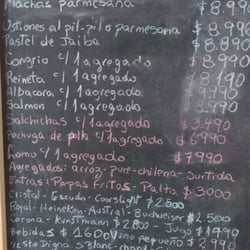 Machas parmesana $8.990
Ostiones al pil-pil o parmesana $8.990
Pastel de Jaiba $8.990
Congrio c/1 agregado $8.990
Reineta c/1 agregado $8.190
Albacora c/1 agregado $8.990
Salmon c/1 agregado $8.990
Salchichas c/1 agregado $3.490
Pechuga de pollo c/1 agregado $6.990
Lomo 4 1 agregado $7990
Agregados: arroz - pure - chilena - Surtida
Extras: Papas Fritas - Palta $3000
Cristal - Escudo - Coors Light $2.000
Royal - Heineken - Austral - Budweiser $2.500
Corona - Kunstmann $2.800 Jugo $1990
Bebidas $1600 Vino pequeño $2.990